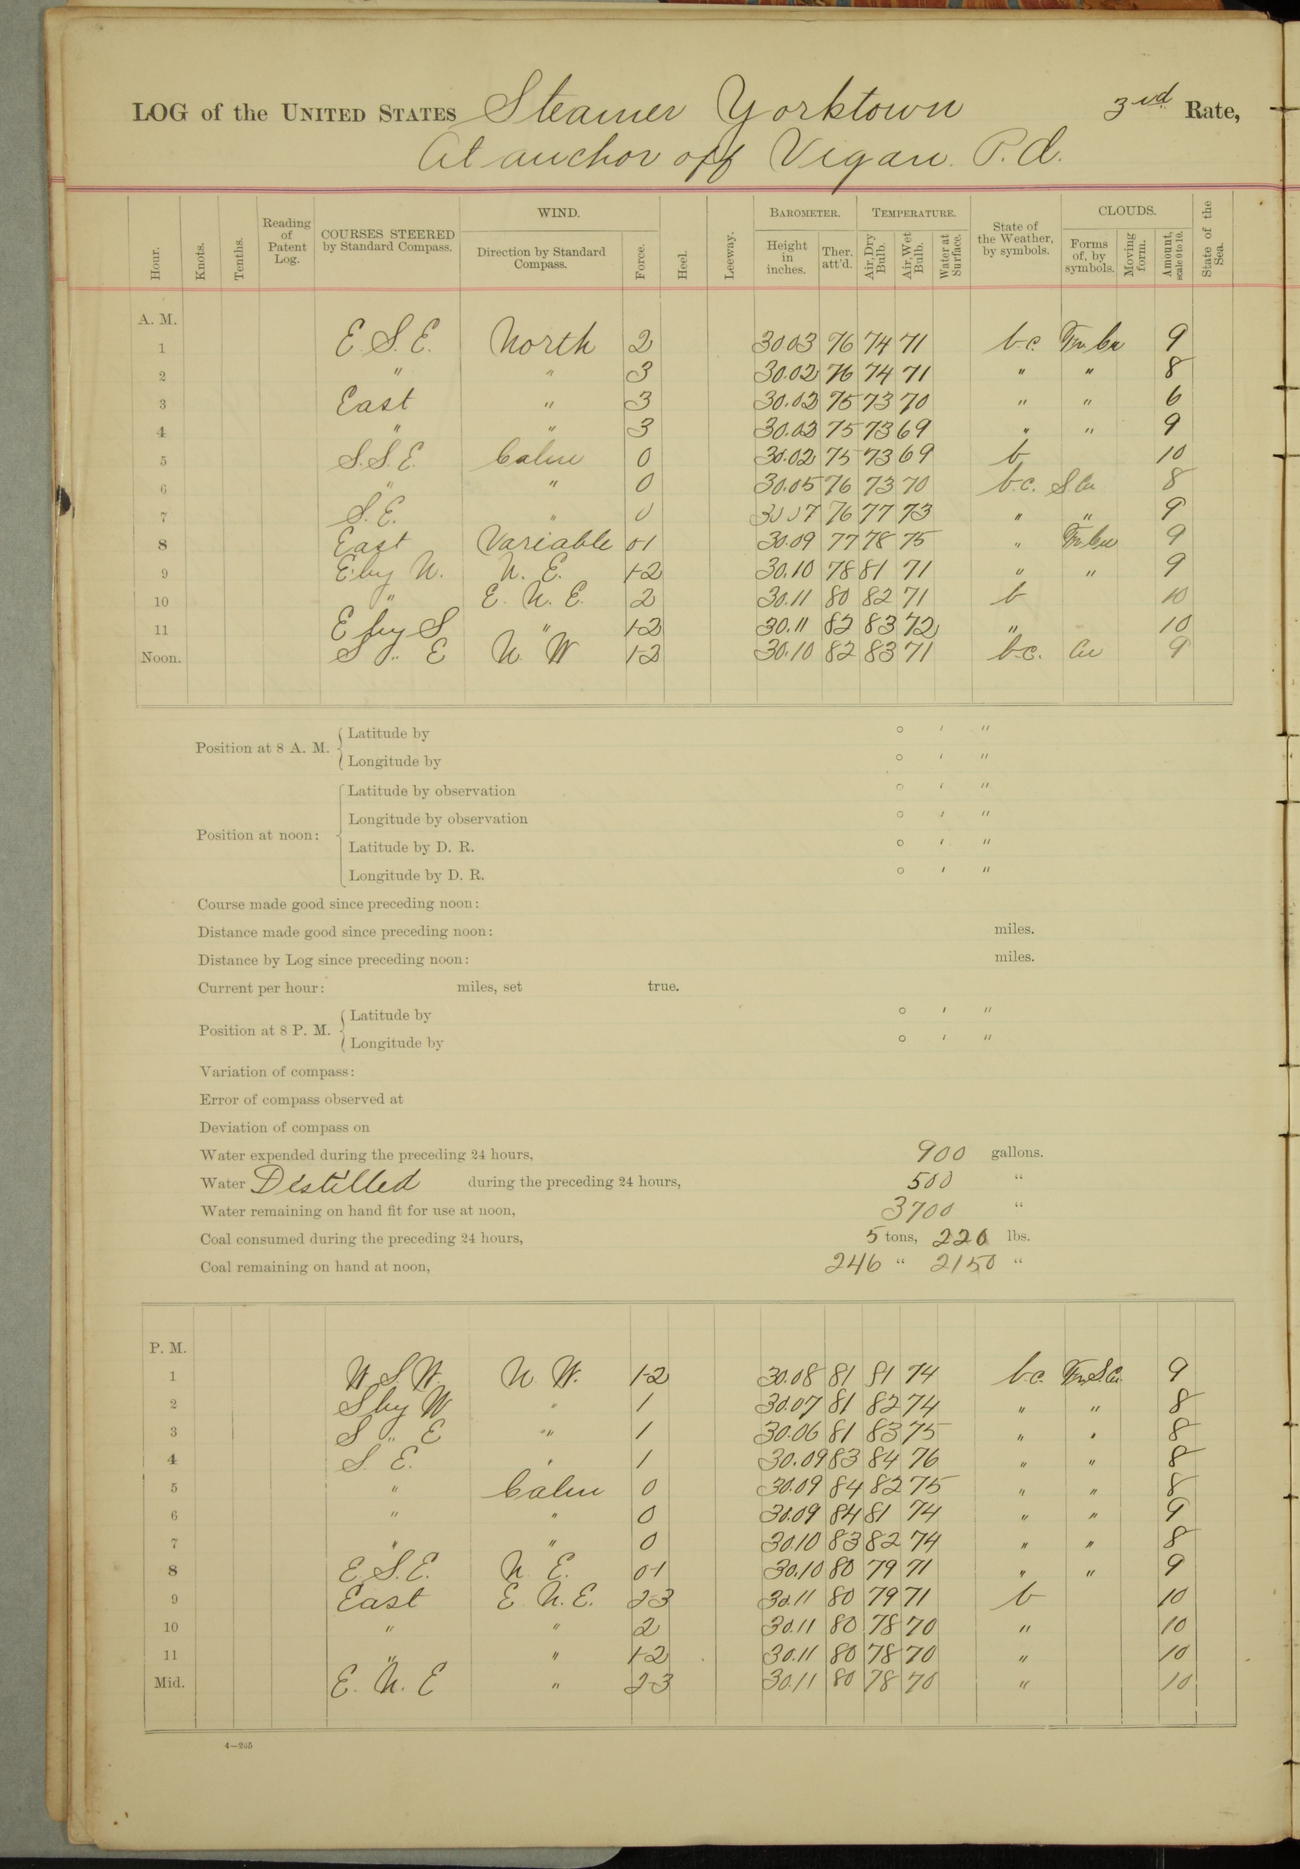 LOG of the UNITED STATES Steamer Yorktown 3rd Rate,
At anchor off Vigan P.I.
Hour. Knots. Tenths. Reading of Patent Log. COURSES STEERED by Standard Compass. WIND. Direction by Standard Compass. Force. Heel. Leeway. BAROMETER. Height in inches. Ther. att'd. TEMPERATURE. Air, Dry Bulb. Air, Wet Bulb. Water at Surface. State of the Weather, by symbols. CLOUDS. Forms of, by symbols. Moving form. Amount, scale 0 to 10. State of the Sea.
A. M.
1 E.S.E. North 2 30.03 76 74 71 b.c. Cu 9
2 " " 3 30.02 76 74 71 " " 8
3 East " 3 30.02 75 73 70 " " 6
4 " " 3 30.03 75 73 69 " " 9
5 S.S.E. Calm 0 30.02 75 73 69 b 10
6 " " 0 30.05 76 73 70 b.c. S.Cu 8
7 S.E. " 0 30.07 76 77 73 " " 9
8 East Variable 0-1 30.09 77 78 75 " 9
9 E by N. N. E. 1-2 30.10 78 81 71 " " 9
10 " E. N. E. 2 30.11 80 82 71 b 10
11 E by S " 1-2 30.11 82 83 72 " 10
Noon. S " E N W 1-2 30.10 82 83 71 b.c. Cu 9
Position at 8 A. M. { Latitude by ° ′ ″
Longitude by ° ′ ″
Latitude by observation ° ′ ″
Longitude by observation ° ′ ″
Position at noon:
Latitude by D. R. ° ′ ″
Longitude by D. R. ° ′ ″
Course made good since preceding noon:
Distance made good since preceding noon: miles.
Distance by Log since preceding noon: miles.
Current per hour: miles, set true.
Position at 8 P. M. { Latitude by ° ′ ″
Longitude by ° ′ ″
Variation of compass:
Error of compass observed at
Deviation of compass on
Water expended during the preceding 24 hours, 900 gallons.
Water Distilled during the preceding 24 hours, 500 "
Water remaining on hand fit for use at noon, 3700 "
Coal consumed during the preceding 24 hours, 5 tons, 220 lbs.
Coal remaining on hand at noon, 246 " 2150 "
P. M.
1 W.S.W. N. W. 1-2 30.08 81 81 74 b.c. S.Cu. 9
2 S by W " 1 30.07 81 82 74 " " 8
3 S " E " 1 30.06 81 83 75 " " 8
4 S. E. " 1 30.09 83 84 76 " " 8
5 " Calm 0 30.09 84 82 75 " " 8
6 " " 0 30.09 84 81 74 " " 9
7 " " 0 30.10 83 82 74 " " 8
8 E.S.E. N. E. 0-1 30.10 80 79 71 " " 9
9 East E. N. E. 2-3 30.11 80 79 71 b 10
10 " " 2 30.11 80 78 70 " 10
11 " " 1-2 30.11 80 78 70 " 10
Mid. E. N. E " 2-3 30.11 80 78 70 " 10
4—265